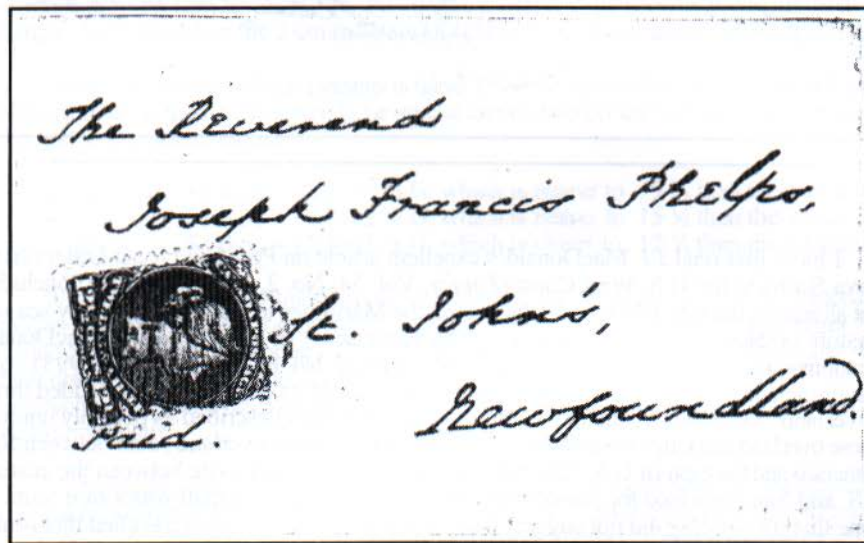 The Reverend
Joseph Francis Phelps,
St. John's,
Newfoundland.
Paid